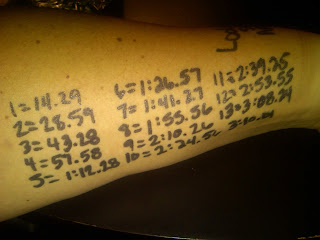 1=14.29
2=28.59
3=43.28
4=57.58
5=1:12.28
6=1:26.57
7=1:41.27
8=1:55.56
9=2:10.26
10=2:24.52
11=2:39.25
12=2:53.55
13=3:08.24